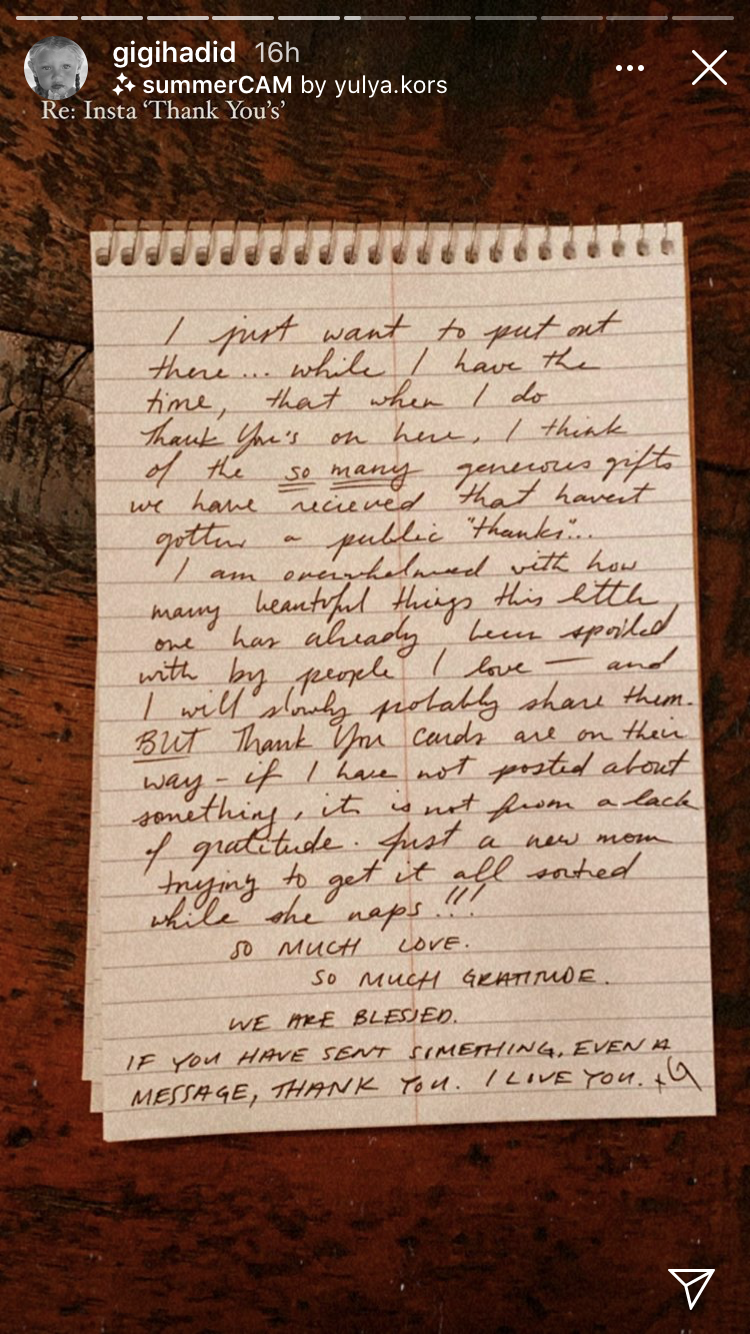 gigihadid 16h
summerCAM by yulya.kors
Re: Insta ‘Thank You’s’
I just want to put out
there... while I have the
time, that when I do
Thank You's on here, I think
of the so many generous gifts
we have recieved that havent
gotten a public "thanks"...
I am overwhelmed with how
many beautiful things this little
one has already been spoiled
with by people I love — and
I will slowly probably share them.
BUT Thank You cards are on their
way - if I have not posted about
something, it is not from a lack
of gratitude. Just a new mom
trying to get it all sorted
while she naps!!!
SO MUCH LOVE.
SO MUCH GRATITUDE.
WE ARE BLESSED.
IF YOU HAVE SENT SOMETHING, EVEN A
MESSAGE, THANK YOU. I LOVE YOU. xG